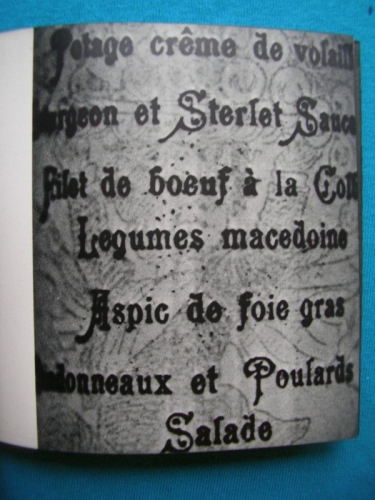 Potage crême de volaill
urgeon et Sterlet Sauce
Filet de boeuf à la Colb
Legumes macedoine
Aspic de foie gras
ndonneaux et Poulards
Salade